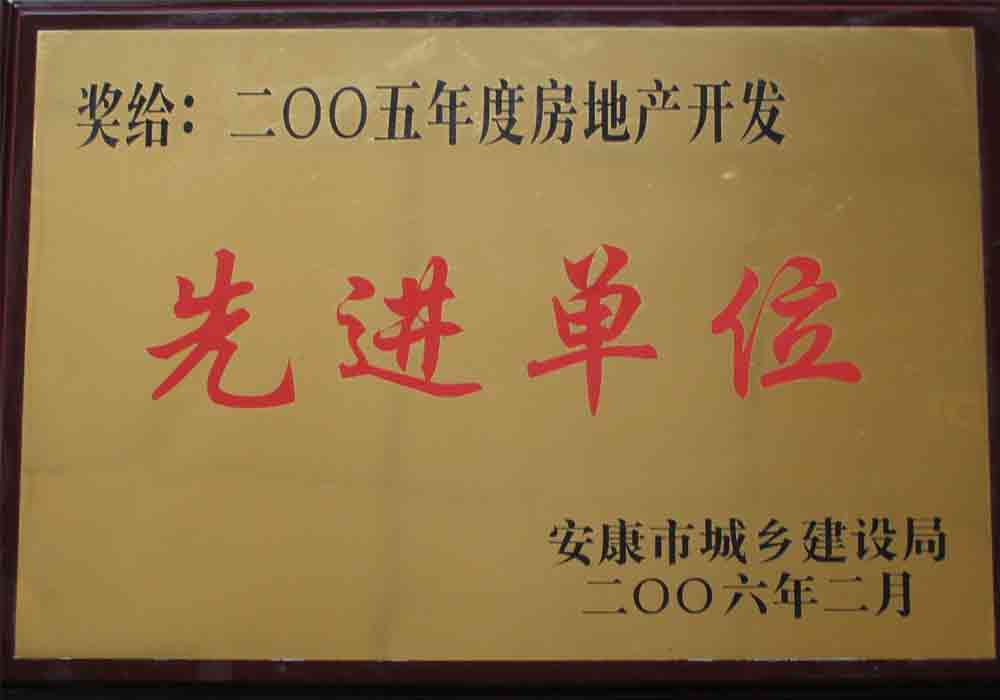 奖给：二〇〇五年度房地产开发
先进单位
安康市城乡建设局
二〇〇六年二月